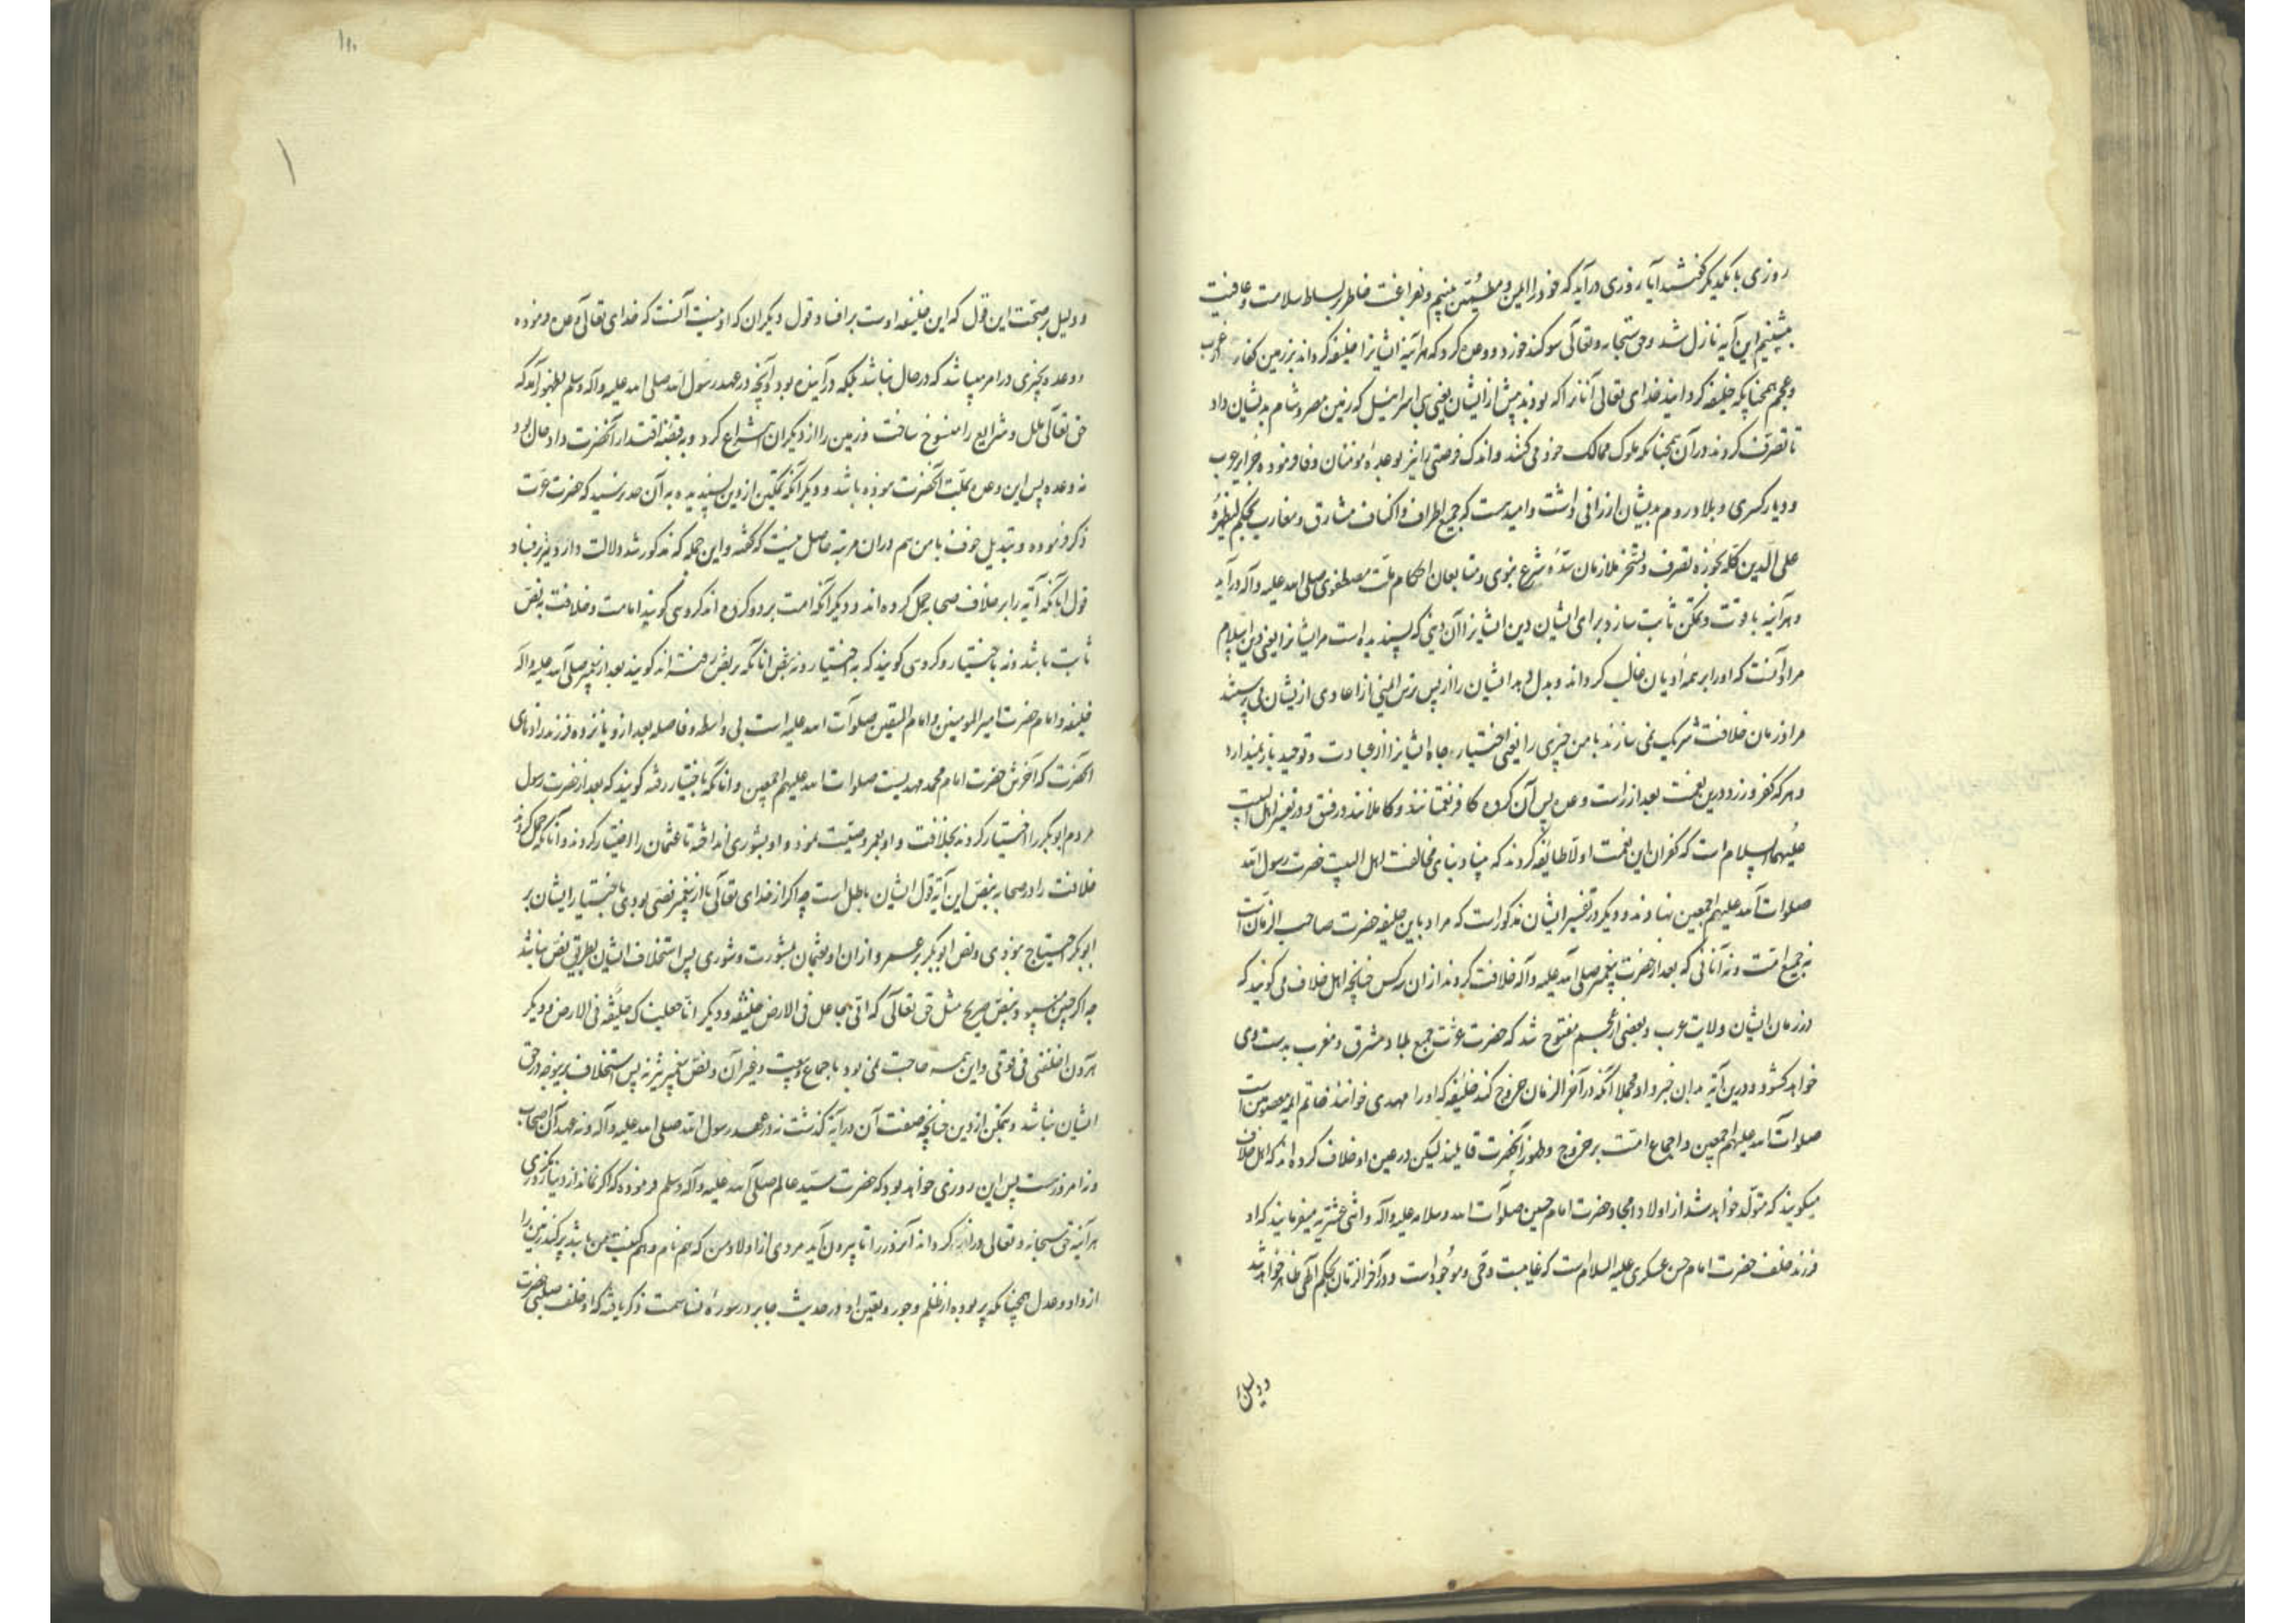 روزی با یکدیگر گفتند آیا روزی درآید که خود را ایمن و مطمئن بینیم و بفراغت خاطر بر بساط سلامت و عافیت
بنشینیم این آیه نازل شد و حق سبحانه و تعالی سوکند خورد و وعده کرد که هرآینه ایشانرا خلیفه کرداند بر زمین کفار از عرب
و عجم همچنانکه خلیفه کردانید خدای تعالی آنانرا که بودند پیش از ایشان یعنی بنی اسرائیل که زمین مصر و شام بدیشان داد
تا تصرف کردند در آن همچنانکه ملوک ممالک خود می کنند و اندک فرصتی را نیز بوعده مؤمنان وفا فرموده جزایر عرب
و دیار کسری و بلاد روم بدیشان ارزانی داشت و امید هست که جمیع اطراف و اکناف مشارق و مغارب بحکم لیظهره
علی الدین کله بحوزه تصرف و تسخر ملازمان سده شرع نبوی و متابعان احکام ملت مصطفوی صلی الله علیه و آله درآید
و هرآینه با قوت و تمکن ثابت سازد برای ایشان دین ایشانرا آن دینی که پسندیده است مر ایشانرا یعنی دین اسلام
مراد آنست که او را بر همه ادیان غالب کرداند و بدل دهد ایشان را از پس ترس ایمنی از اعادی از یشان می پرستند
مرا در زمان خلافت شریک نمی سازند با من چیزی را یعنی اختیار جاه ایشانرا از عبادت و توحید باز نمیدارد
و هر که کفر ورزد درین نعمت بعد از راست وعده پس آن کروه کافر نعمتانند و کاملانند در فسق و در تفسیر اهل البیت
علیهم السلام است که کفران این نعمت اولا طایفه کردند که بنیاد بنای مخالفت اهل البیت حضرت رسول الله
صلوات الله علیهم اجمعین نهادند و دیکر در تفسیر ایشان مذکور است که مراد باین خلیفه حضرت صاحب الزمان است
نه جمیع امت و نه آنانی که بعد از حضرت پیغمبر صلی الله علیه و آله خلافت کردند از ان سه کس چنانچه اهل خلاف می کویند که
در زمان ایشان ولایت عرب و بعضی از عجم مفتوح شد که حضرت عزت جمیع بلاد مشرق و مغرب بدست وی
خواهد کشود و درین آیه بدان خبر داد مجملا آنکه در آخر الزمان خروج کند خلیفه که او را مهدی خوانند خاتم ائمه معصومین است
صلوات الله علیهم اجمعین و اجماع امت بر خروج و ظهور آنحضرت قایلند لیکن در عین او خلاف کرده اند که اهل خلاف
میکویند که متولد خواهد شد از اولاد امجاد حضرت امام حسین صلوات الله و سلامه علیه و آله و اثنی عشریه میفرمایند که او
فرزند خلف حضرت امام حسن عسکری علیه السلام است که غایب و حی و موجود است و در آخر الزمان بحکم الهی ظاهر خواهد شد
و دلیل
و دلیل بر صحت این قول که این خلیفه اوست بر افساد قول دیکران که او نیست آنست که خدای تعالی وعده فرموده
و وعده بچیزی در امر میباشد که در حال نباشد بلکه در آینده بود و آنچه در عهد رسول الله صلی الله علیه و آله و سلم بظهور آمد که
حق تعالی ملل و شرایع را منسوخ ساخت و زمین را از دیکران انتزاع کرد و به قبضه اقتدار آنحضرت داد حال بود
نه وعده پس این وعده بملت آنحضرت موده باشد و دیکر آنکه تمکین از دین پسندیده به آن حد نرسید که حضرت عزت
ذکر فرموده و تبدیل خوف با من هم دران مرتبه حاصل نیست که گفته و این جمله که مذکور شد دلالت دارد نیز بر فساد
قول آنانکه آیه را بر خلاف صحابه حمل کرده اند و دیکر آنکه امت بر دو کروه اند کروهی کویند امامت و خلافت به نص
ثابت باشد و نه باختیار و کروهی کویند که به اختیار و نه بنص آنانکه بر نص رفته اند کویند بعد از پیغمبر صلی الله علیه و آله
خلیفه و امام حضرت امیر المومنین و امام المتقین صلوات الله علیه است بی واسطه و فاصله بعد از و یازده فرزند زادهای
آنحضرت که آخرش حضرت امام محمد مهدیست صلوات الله علیهم اجمعین و آنانکه باختیار رفته کویند که بعد از حضرت رسول
مردم ابوبکر را اختیار کردند بخلافت و او بعمر وصیت نمود و او بشوری انداخته تا عثمان را اختیار کردند و آنانکه حمل کردند
خلافت را در صحابه بنص این آیه قول ایشان باطل است چه اکر از خدای تعالی یا از پیغمبر نصی بودی باختیار ایشان بر
ابوبکر احتیاج نبودی و نص ابوبکر بر عمر و از ان او بعثمان بمشورت و شوری پس استخلاف ایشان بطریق نص نباشد
چه اکر چنین بود بنص صریح مثل حق تعالی که انی جاعل فی الارض خلیفه و دیکر انا جعلناک خلیفة فی الارض و دیکر
هرون اخلفنی فی قومی و این همه حاجت نمی بود باجماع و بیعت و غیر آن و نص پیغمبر نیز نه پس استخلاف بدینوجه در حق
ایشان نباشد و تمکین از دین چنانچه صفت آن در آیه گذشت نه در عهد رسول الله صلی الله علیه و آله و نه عهد آن اصحاب
و نه امروز است پس این روزی خواهد بود که حضرت سید عالم صلی الله علیه و آله و سلم فرموده که اکر نماند از دنیا مکر روزی
هرآینه حق سبحانه و تعالی دراز کرداند آنروز را تا بیرون آید مردی از اولاد من که هم نام و هم کنیت من باشد پر کند زمین را
از داد و عدل همچنانکه پر بوده از ظلم و جور و یقین او در حدیث جابر در سوره نساء سمت ذکر یافته که او خلف صلبی حضرت